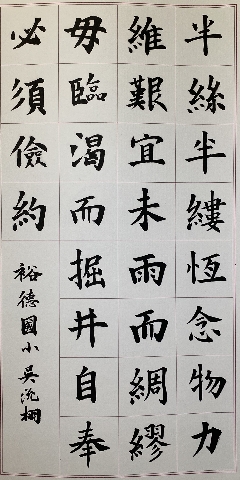 半絲半縷恆念物力
維艱宜未雨而綢繆
毋臨渴而掘井自奉
必須儉約
裕德國小吳沇栩